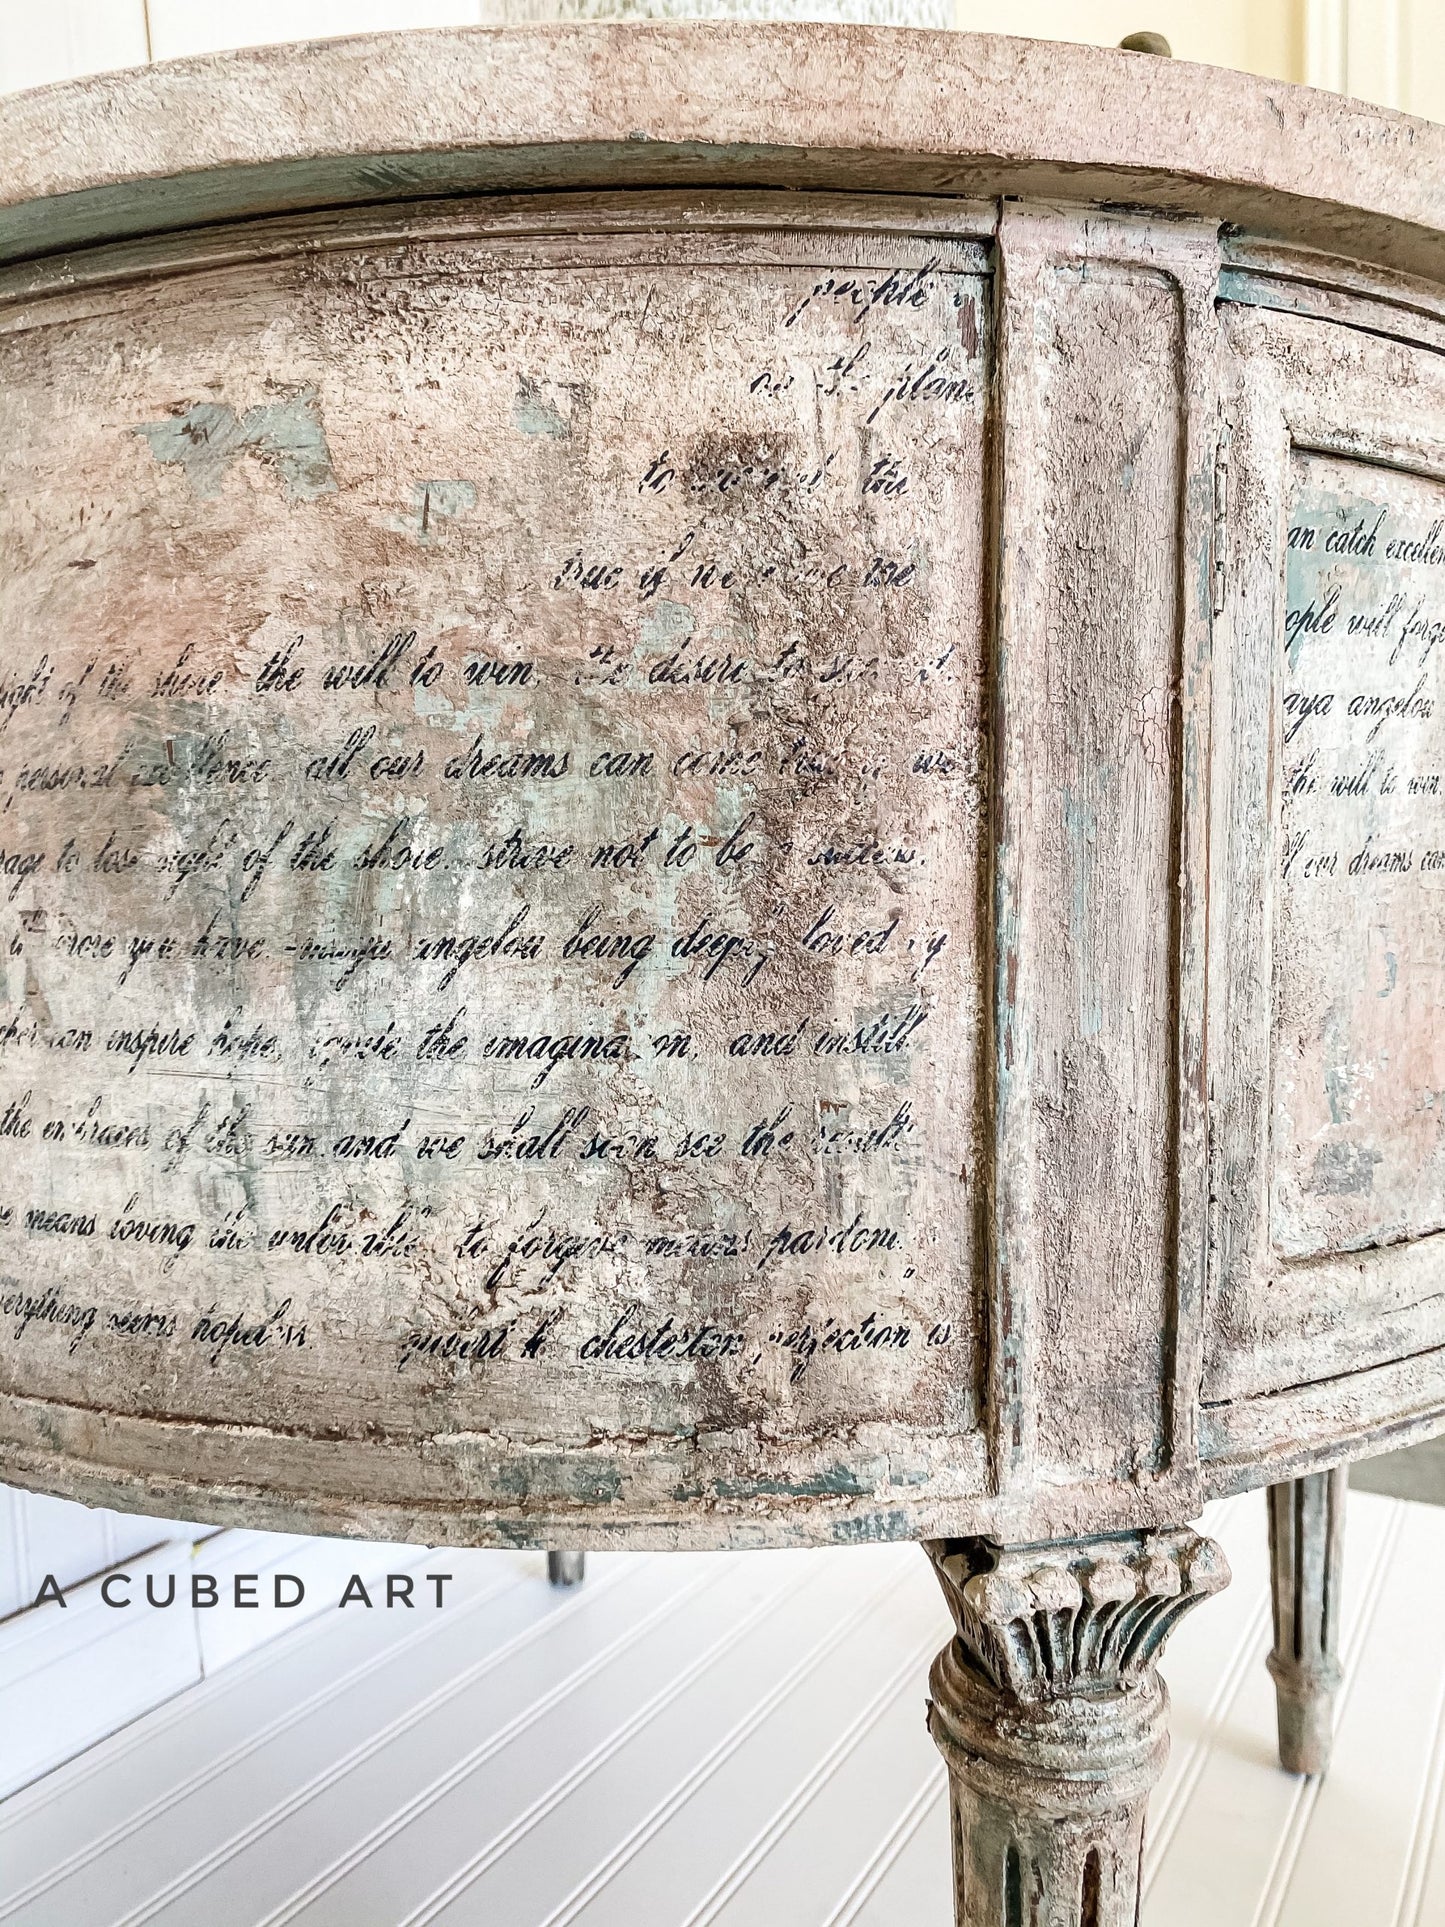 people
on the plan
to the
true if we the
light of the shore. the will to win, the desire to
personal excellence. all our dreams can come true if we
rage to lose sight of the shore. strive not to be a success,
more you have. -maya angelou being deeply loved by
cher can inspire hope, ignite the imagination, and instill
the embraces of the sun and we shall soon see the result
means loving the unlovable. to forgive means pardon
verything seems hopeless. gilbert k. chesterton perfection is
an catch excellen
ople will forge
aya angelou
the will to win,
our dreams can
A CUBED ART